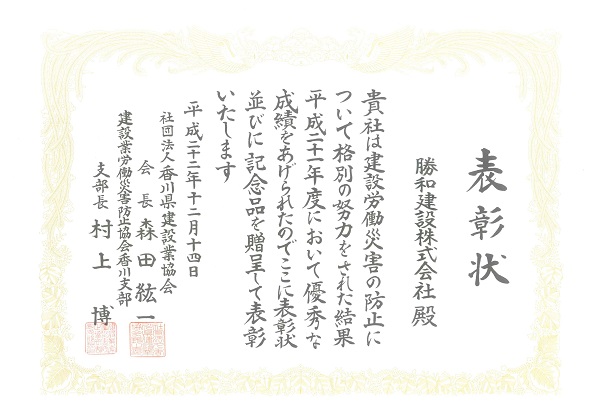 表彰状
勝和建設株式会社殿
貴社は建設労働災害の防止に
ついて格別の努力をされた結果
平成二十一年度において優秀な
成績をあげられたのでここに表彰状
並びに記念品を贈呈して表彰
いたします
平成二十二年十二月十四日
社団法人香川県建設業協会
会長森田紘一
建設業労働災害防止協会香川支部
支部長村上博